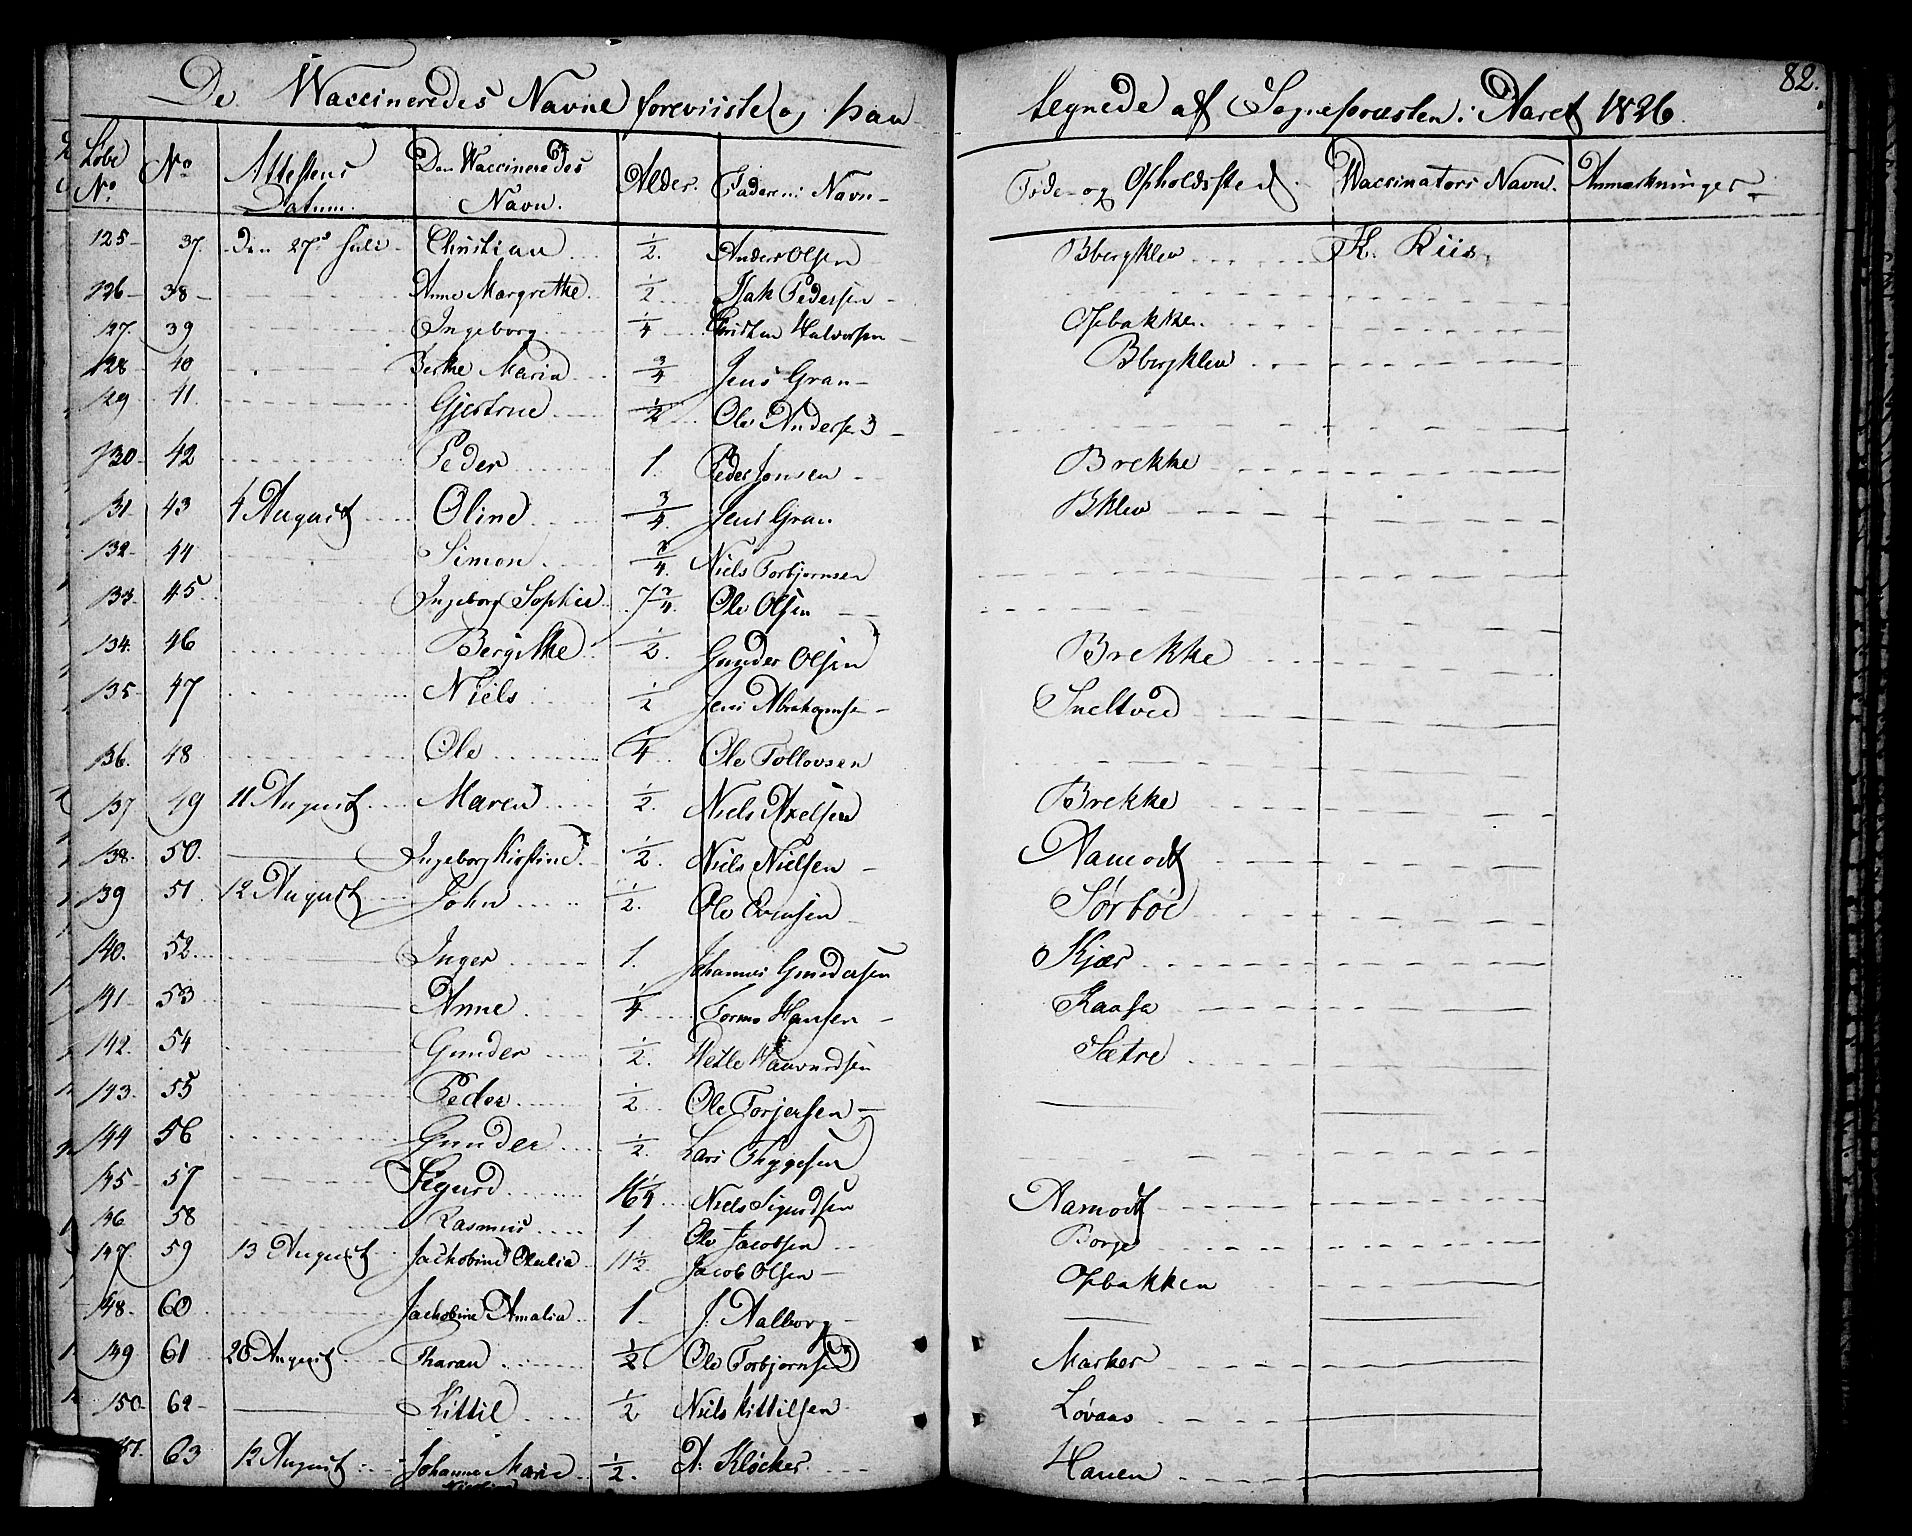 82.
De Waccineredes Navne foreviiste og paa tegnede af Sognepræsten i Aaret 1826.
Løbe No. No Attestens Datum. Den Waccineredes Navn. Alder. Faderens Navn Føde- og Opholdssted. Waccinators Navn. Anmærkninger
125 37. Den 27de Juli Christian 1/2. Anders Olsen Bbergklev K. Riis.
126 38 Anne Margrethe 1/2 Isak Pedersen
127. 39 Ingeborg 1/4 Christen Halvorsen Opbakke
128 40 Berthe Maria 3/4 Jens Gran Bbergklev
129 41. Gjertrue 1/2 Ole Anders
130 42 Peder 1. Peder Jonsen Brekke
131 43 4 August Oline 3/4. Jens Gran Bklev
132 44 Simon 3/4. Niels Torbjornsen
133 45 Ingeborg Sophie 7 3/4. Ole Olsen
134. 46 Bergithe 1/2. Gunder Olsen Brekke
135 47 Niels 1/2 Jens Abrahamse Sneltved
136. 48 Ole 1/4 Ole Tollovsen
137 49 11 August Maren 1/2. Niels Axelsen Brekke
138. 50. Ingeborg Kirstine 1/2. Niels Nielsen Aamodt
139 51. 12 August John 1/2. Ole Evensen Sørbøe
140. 52. Inger 1. Johannes Gundersen Kjær
141 53 Anne 1/4 Tormo Hansen Kaasa
142. 54 Gunder 1/2. Wetle Haavordsen Sætre
143 55 Peder 1/2 Ole Torjersen
144 56 Gunder 1/2. Lars Thygesen
145 57 Sigurd 16 1/4 Niels Sigurdsen Aamodt
146 58 Rasmus 1 Ole Jacobsen Borge
147 59 13 August Jackobine Olealia 11 1/2 Jacob Olsen Opbakken
148. 60 Jackobine Amalia 1. J. Aalborg
149 61 28 August Tharan 1/2. Ole Torbjornsen Marker
150 62 Kittil 1/2 Niels Kittilsen Løvaas
151. 63 12 August Johanne Marie 1/2. A. Kløcker Hauen